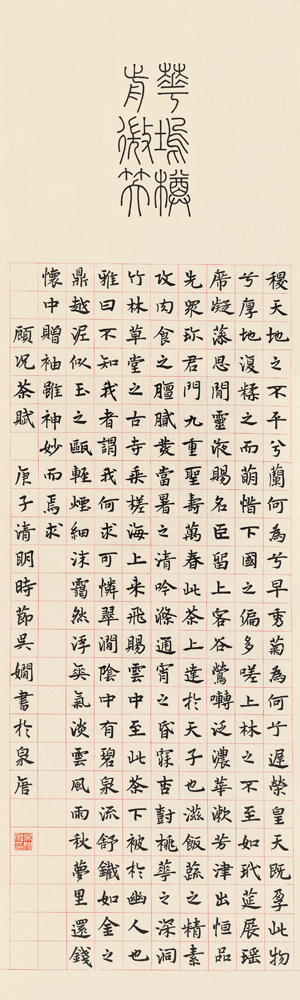 華塢樽
前微笑
稷天地之不平兮蘭何為兮早秀菊為何兮遲榮皇天既孕此物
兮厚地復糅之而萌惜下國之偏多嗟上林之不至如玳筵展瑤
席凝藻思間靈液賜名臣留上客谷鶯囀泛濃華漱芳津出恒品
先眾珍君門九重聖壽萬春此茶上達於天子也滋飯蔬之精素
攻肉食之膻膩發當暑之清吟滌通宵之昏寐杏樹桃華之深洞
竹林草堂之古寺乘槎海上來飛賜雲中至此茶下被於幽人也
雅曰不知我者謂我何求可憐翠澗陰中有碧泉流舒鐵如金之
鼎越泥似玉之甌輕煙細沫靄然浮爽氣淡雲風雨秋夢里還錢
懷中贈袖雖神妙而焉求
顧況茶賦 庚子清明時節吳嫺書於泉唐